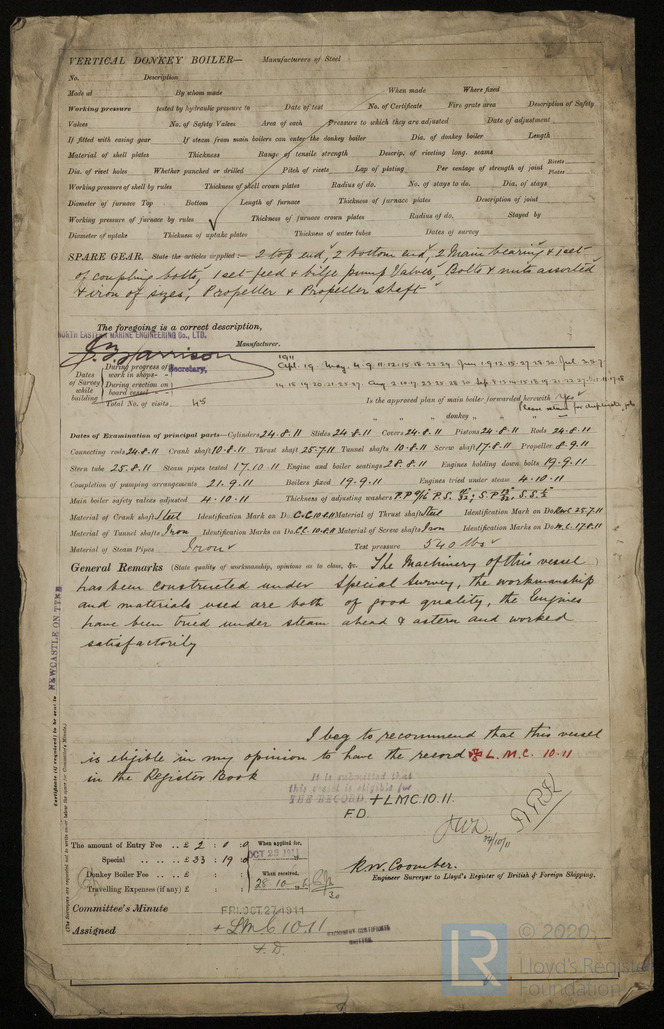 VERTICAL DONKEY BOILER— Manufacturers of Steel
No. Description
Made at By whom made When made Where fixed
Working pressure tested by hydraulic pressure to Date of test No. of Certificate Fire grate area Description of Safety
Valves No. of Safety Valves Area of each Pressure to which they are adjusted Date of adjustment
If fitted with easing gear If steam from main boilers can enter the donkey boiler Dia. of donkey boiler Length
Material of shell plates Thickness Range of tensile strength Descrip. of riveting long. seams
Dia. of rivet holes Whether punched or drilled Pitch of rivets Lap of plating Per centage of strength of joint Rivets Plates
Working pressure of shell by rules Thickness of shell crown plates Radius of do. No. of stays to do. Dia. of stays
Diameter of furnace Top Bottom Length of furnace Thickness of furnace plates Description of joint
Working pressure of furnace by rules Thickness of furnace crown plates Radius of do. Stayed by
Diameter of uptake Thickness of uptake plates Thickness of water tubes Dates of survey
SPARE GEAR. State the articles supplied:— 2 top end, 2 bottom end, 2 Main bearing & 1 set
of coupling bolts, 1 set feed & bilge pump Valves, Bolts & nuts assorted
& iron of sizes, Propeller & Propeller shaft
The foregoing is a correct description,
NORTH EASTERN MARINE ENGINEERING Co., LTD.
Manufacturer.
Harrison
Secretary,
Dates of Survey while building
During progress of work in shops - - 1911 Apl. 19 May. 4. 9. 11. 12. 15. 18. 22. 29.
During erection on board vessel - - -
Total No. of visits 45 Is the approved plan of main boiler forwarded herewith Yes
" " " donkey " "
Dates of Examination of principal parts—Cylinders 24.8.11 Slides 24.8.11 Covers 24.8.11 Pistons 24.8.11 Rods 24.8.11
Connecting rods 24.8.11 Crank shaft 10.8.11 Thrust shaft 25.7.11 Tunnel shafts 10.8.11 Screw shaft 17.8.11 Propeller 8.9.11
Stern tube 25.8.11 Steam pipes tested 17.10.11 Engine and boiler seatings 28.8.11 Engines holding down bolts 19.9.11
Completion of pumping arrangements 21.9.11 Boilers fixed 19.9.11 Engines tried under steam 4.10.11
Main boiler safety valves adjusted 4.10.11 Thickness of adjusting washers
Material of Crank shaft Steel Identification Mark on Do. C.C 10.8.11 Material of Thrust shaft Steel Identification Mark on Do. 25.7.11
Material of Tunnel shafts Iron Identification Marks on Do. C.C. 10.8.11 Material of Screw shafts Iron Identification Marks on Do. 17.8.11
Material of Steam Pipes Iron Test pressure 540 lbs
General Remarks (State quality of workmanship, opinions as to class, &c. The Machinery of this vessel
has been constructed under Special Survey, the workmanship
and materials used are both of good quality, the Engines
have been tried under steam ahead & astern and worked
satisfactorily
I beg to recommend that this vessel
is eligible in my opinion to have the record L.M.C. 10.11
in the Register Book
It is submitted that
this vessel is eligible for
THE RECORD. + LMC. 10.11.
F.D.
NEWCASTLE ON TYNE
The amount of Entry Fee .. £ 2 : 0 : 0 When applied for,
Special .. .. .. £ 33 : 19 : 0 OCT 26 1911
Donkey Boiler Fee .. .. £ : : When received,
Travelling Expenses (if any) £ : : 28.10
R.W. Coomber.
Engineer Surveyor to Lloyd's Register of British & Foreign Shipping.
Committee's Minute FRI. OCT 27 1911
Assigned + LMC 10.11
F.D.
MACHINERY CERTIFICATE WRITTEN.
LR © 2020
Lloyd's Register
Foundation